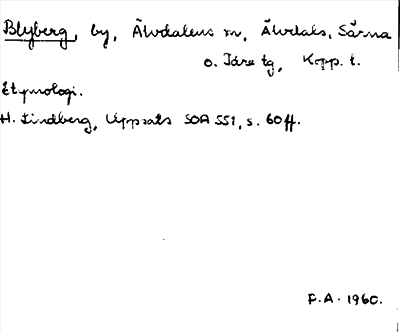 Blyberg, by, Älvdalens sn, Älvdals, Särna
o. Idre tg, Kopp. l.
Etymologi.
H. Lindberg, Uppsats SOA 551, s. 60 ff.
P.A. 1960.